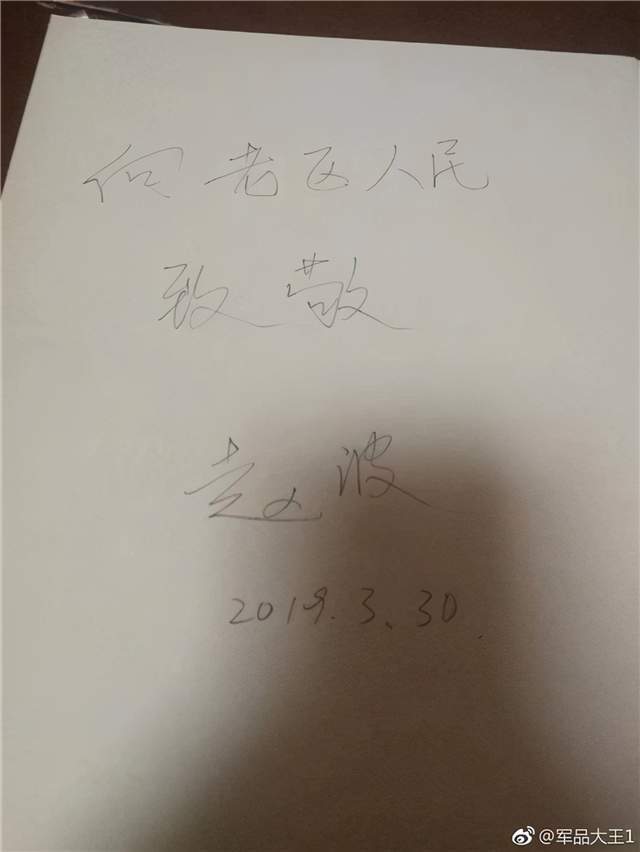 向老区人民
致敬
赵波
2019.3.30.
@军品大王1